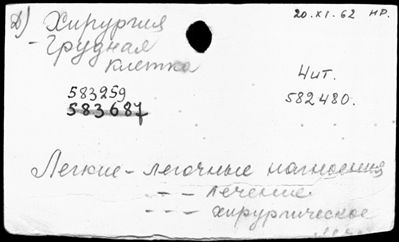 Д) Хирургия
20.XI.62 НР.
- Грудная
клетка
Чит.
583259
582480.
583687
Легкие - легочные нагноения
- - - лечение
- - - хирургическое